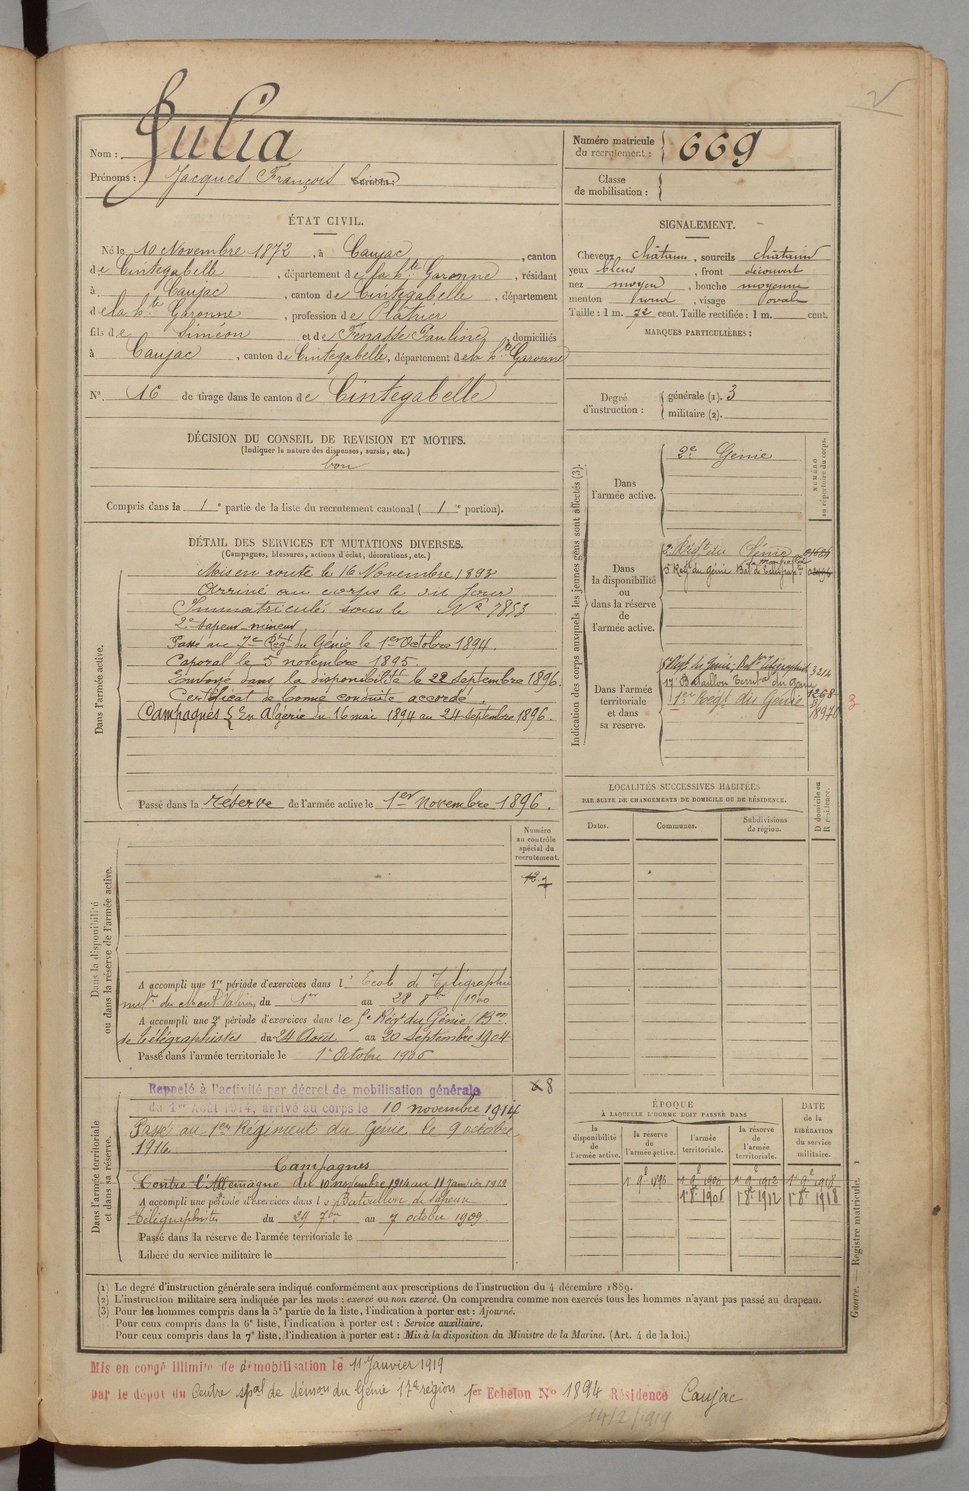 2
Nom : Julia
Prénoms : Jacques François Surnoms :
Numéro matricule du recrutement : 669
Classe de mobilisation :
ÉTAT CIVIL.
Né le 10 Novembre 1872, à Caujac, canton
de Cintegabelle, département de la hte Garonne, résidant
à Caujac, canton de Cintegabelle, département
de la hte Garonne, profession de Plâtrier
fils de Siméon et de Fenasse Pauline, domiciliés
à Caujac, canton de Cintegabelle, département de la hte Garonne
N°. 16 de tirage dans le canton de Cintegabelle
SIGNALEMENT.
Cheveux châtains, sourcils châtains
yeux bleus, front découvert
nez moyen, bouche moyenne
menton rond, visage ovale
Taille : 1 m. 72 cent. Taille rectifiée : 1 m. cent.
MARQUES PARTICULIÈRES :
Degré d'instruction : générale (1). 3
militaire (2).
DÉCISION DU CONSEIL DE REVISION ET MOTIFS.
(Indiquer la nature des dispenses, sursis, etc.)
bon
Compris dans la 1e partie de la liste du recrutement cantonal ( 1re portion).
DÉTAIL DES SERVICES ET MUTATIONS DIVERSES.
(Campagnes, blessures, actions d'éclat, décorations, etc.)
Dans l'armée active.
Mis en route le 16 Novembre 1893
Arrivé au corps le dit jour
Immatriculé sous le N° 7853
2e sapeur-mineur
Passé au 7e Régt du Génie le 1er Octobre 1894.
Caporal le 5 novembre 1895.
Envoyé dans la disponibilité le 22 septembre 1896.
Certificat de bonne conduite accordé.
Campagnes { En Algérie du 16 mai 1894 au 24 septembre 1896.
Passé dans la réserve de l'armée active le 1er Novembre 1896.
Indication des corps auxquels les jeunes gens sont affectés (3).
NUMÉRO au répertoire du corps.
Dans l'armée active.
2e Génie
Dans la disponibilité ou dans la réserve de l'armée active.
2e Régt du Génie
5e Régt du Génie Bat de Télégraph
Dans l'armée territoriale et dans sa réserve.
3214
17e Bataillon Territal du Génie 1268
1er Régt du Génie 18976
3
LOCALITÉS SUCCESSIVES HABITÉES
PAR SUITE DE CHANGEMENTS DE DOMICILE OU DE RÉSIDENCE.
Dates. Communes. Subdivisions de région. D domicile ou R résidence.
Numéro au contrôle spécial du recrutement.
Dans la disponibilité ou dans la réserve de l'armée active.
A accompli une 1re période d'exercices dans l'Ecole de Télégraphie
milre du Mont Valérien du 1er au 28 8bre 1900
A accompli une 2e période d'exercices dans le 5e Régt du Génie (Bon
de télégraphistes du 24 Août au 20 Septembre 1904
Passé dans l'armée territoriale le 1er Octobre 1906
8
Dans l'armée territoriale et dans sa réserve.
Rappelé à l'activité par décret de mobilisation générale
du 1er Août 1914, arrivé au corps le 10 novembre 1914
Passé au 1er Régiment du Génie le 9 octobre
1916.
Campagnes
Contre l'Allemagne du 10 novembre 1914 au 11 janvier 1919
A accompli une période d'exercices dans le Bataillon de Sapeurs
télégraphistes du 29 7bre au 7 octobre 1909.
Passé dans la réserve de l'armée territoriale le
Libéré du service militaire le
ÉPOQUE
À LAQUELLE L'HOMME DOIT PASSER DANS
la disponibilité de l'armée active. la réserve de l'armée active. l'armée territoriale. la réserve de l'armée territoriale.
DATE de la LIBÉRATION du service militaire.
1 9 1896 1 9 1906 1 9 1912 1 9 1918
1 8 1906 1 8 1912 1 8 1918
Guerre. — Registre matricule. 1
(1) Le degré d'instruction générale sera indiqué conformément aux prescriptions de l'instruction du 4 décembre 1889.
(2) L'instruction militaire sera indiquée par les mots : exercé ou non exercé. On comprendra comme non exercés tous les hommes n'ayant pas passé au drapeau.
(3) Pour les hommes compris dans la 5e partie de la liste, l'indication à porter est : Ajourné.
Pour ceux compris dans la 6e liste, l'indication à porter est : Service auxiliaire.
Pour ceux compris dans la 7e liste, l'indication à porter est : Mis à la disposition du Ministre de la Marine. (Art. 4 de la loi.)
Mis en congé illimité de démobilisation le 11 Janvier 1919
par le dépôt du Centre spal de démon du Génie 17e région 1er Echelon N° 1894 Résidence Caujac